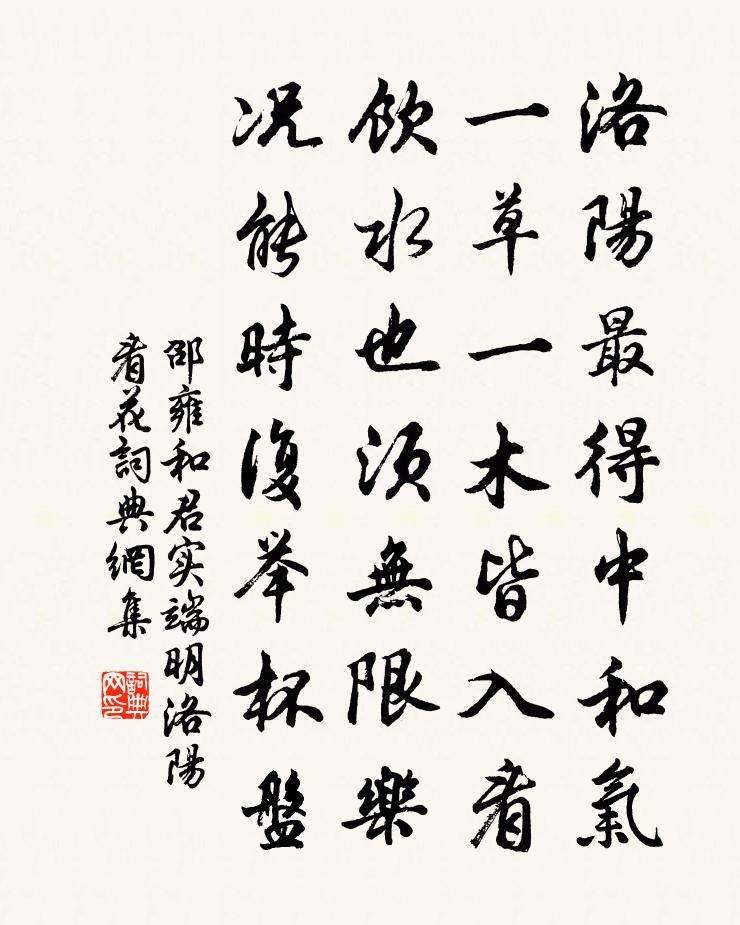 洛陽最得中和氣
一草一木皆入看
飲水也須無限樂
况能時復举杯盤
邵雍和君实端明洛陽
看花詞典網集
詞典網印